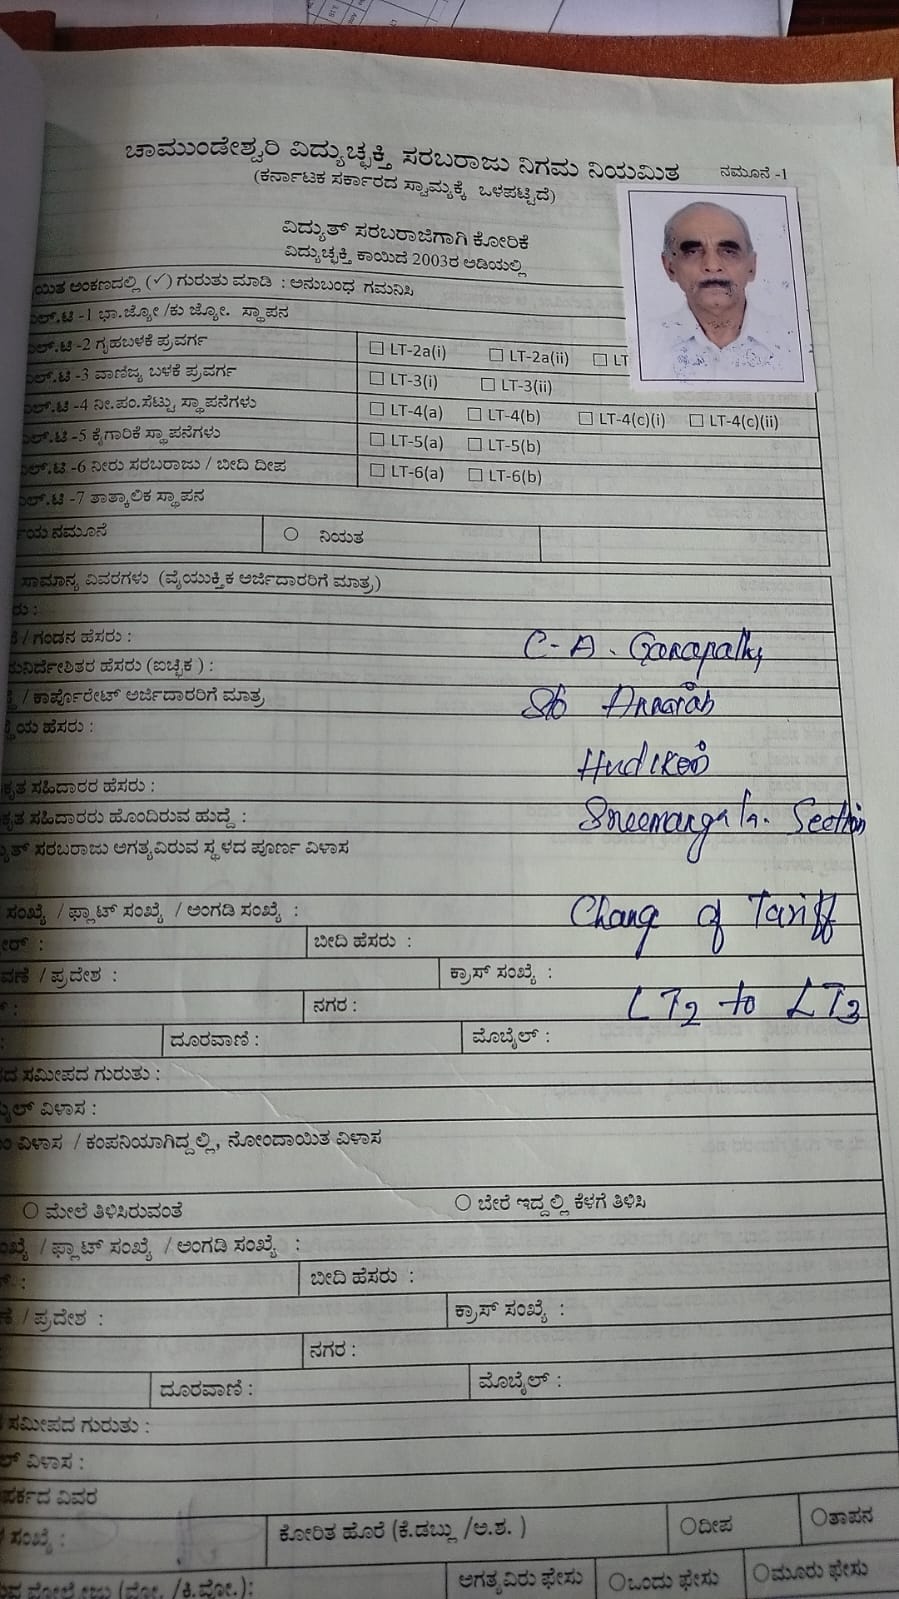 ಚಾಮುಂಡೇಶ್ವರಿ ವಿದ್ಯುಚ್ಛಕ್ತಿ ಸರಬರಾಜು ನಿಗಮ ನಿಯಮಿತ
ನಮೂನೆ -1
(ಕರ್ನಾಟಕ ಸರ್ಕಾರದ ಸ್ವಾಮ್ಯಕ್ಕೆ ಒಳಪಟ್ಟಿದೆ)
ವಿದ್ಯುತ್ ಸರಬರಾಜಿಗಾಗಿ ಕೋರಿಕೆ
ವಿದ್ಯುಚ್ಛಕ್ತಿ ಕಾಯಿದೆ 2003ರ ಅಡಿಯಲ್ಲಿ
ಯಿತ ಅಂಕಣದಲ್ಲಿ (✓) ಗುರುತು ಮಾಡಿ : ಅನುಬಂಧ ಗಮನಿಸಿ
ಎಲ್.ಟಿ -1 ಭಾ.ಜ್ಯೋ /ಕು ಜ್ಯೋ. ಸ್ಥಾಪನ
ಎಲ್.ಟಿ -2 ಗೃಹಬಳಕೆ ಪ್ರವರ್ಗ ☐ LT-2a(i) ☐ LT-2a(ii) ☐ LT
ಎಲ್.ಟಿ -3 ವಾಣಿಜ್ಯ ಬಳಕೆ ಪ್ರವರ್ಗ ☐ LT-3(i) ☐ LT-3(ii)
ಎಲ್.ಟಿ -4 ನೀ.ಪಂ.ಸೆಟ್ಟು ಸ್ಥಾಪನೆಗಳು ☐ LT-4(a) ☐ LT-4(b) ☐ LT-4(c)(i) ☐ LT-4(c)(ii)
ಎಲ್.ಟಿ -5 ಕೈಗಾರಿಕೆ ಸ್ಥಾಪನೆಗಳು ☐ LT-5(a) ☐ LT-5(b)
ಎಲ್.ಟಿ -6 ನೀರು ಸರಬರಾಜು / ಬೀದಿ ದೀಪ ☐ LT-6(a) ☐ LT-6(b)
ಎಲ್.ಟಿ -7 ತಾತ್ಕಾಲಿಕ ಸ್ಥಾಪನ
ಯ ನಮೂನೆ ○ ನಿಯತ
ಸಾಮಾನ್ಯ ವಿವರಗಳು (ವೈಯುಕ್ತಿಕ ಅರ್ಜಿದಾರರಿಗೆ ಮಾತ್ರ)
ರು :
/ ಗಂಡನ ಹೆಸರು : C-A. Ganapathy
ನಿರ್ದೇಶಿತರ ಹೆಸರು (ಐಚ್ಛಿಕ ) :
/ ಕಾರ್ಪೊರೇಟ್ ಅರ್ಜಿದಾರರಿಗೆ ಮಾತ್ರ S/o
ಯ ಹೆಸರು :
Hudikeri
ಕೃತ ಸಹಿದಾರರ ಹೆಸರು :
ಕೃತ ಸಹಿದಾರರು ಹೊಂದಿರುವ ಹುದ್ದೆ : Sreemangala. Section
ತ್ ಸರಬರಾಜು ಅಗತ್ಯವಿರುವ ಸ್ಥಳದ ಪೂರ್ಣ ವಿಳಾಸ
ಸಂಖ್ಯೆ / ಫ್ಲಾಟ್ ಸಂಖ್ಯೆ / ಅಂಗಡಿ ಸಂಖ್ಯೆ : Chang of Tariff
ರ್ : ಬೀದಿ ಹೆಸರು :
ವಣೆ / ಪ್ರದೇಶ : ಕ್ರಾಸ್ ಸಂಖ್ಯೆ :
ನಗರ : LT2 to LT3
ದೂರವಾಣಿ : ಮೊಬೈಲ್ :
ದ ಸಮೀಪದ ಗುರುತು :
ಲ್ ವಿಳಾಸ :
ವಿಳಾಸ / ಕಂಪನಿಯಾಗಿದ್ದಲ್ಲಿ, ನೋಂದಾಯಿತ ವಿಳಾಸ
○ ಮೇಲೆ ತಿಳಿಸಿರುವಂತೆ ○ ಬೇರೆ ಇದ್ದಲ್ಲಿ ಕೆಳಗೆ ತಿಳಿಸಿ
ಖ್ಯೆ / ಫ್ಲಾಟ್ ಸಂಖ್ಯೆ / ಅಂಗಡಿ ಸಂಖ್ಯೆ :
ಬೀದಿ ಹೆಸರು :
ಣೆ / ಪ್ರದೇಶ : ಕ್ರಾಸ್ ಸಂಖ್ಯೆ :
ನಗರ :
ದೂರವಾಣಿ : ಮೊಬೈಲ್ :
ಸಮೀಪದ ಗುರುತು :
ಲ್ ವಿಳಾಸ :
ಪರ್ಕದ ವಿವರ
ಸಂಖ್ಯೆ : ಕೋರಿತ ಹೊರೆ (ಕೆ.ಡಬ್ಲು /ಅ.ಶ. ) ○ದೀಪ ○ತಾಪನ
ವೋಲ್ಟೇಜು (ವೋ. /ಕಿ.ವೋ.): ಅಗತ್ಯವಿರು ಫೇಸು ○ಒಂದು ಫೇಸು ○ಮೂರು ಫೇಸು